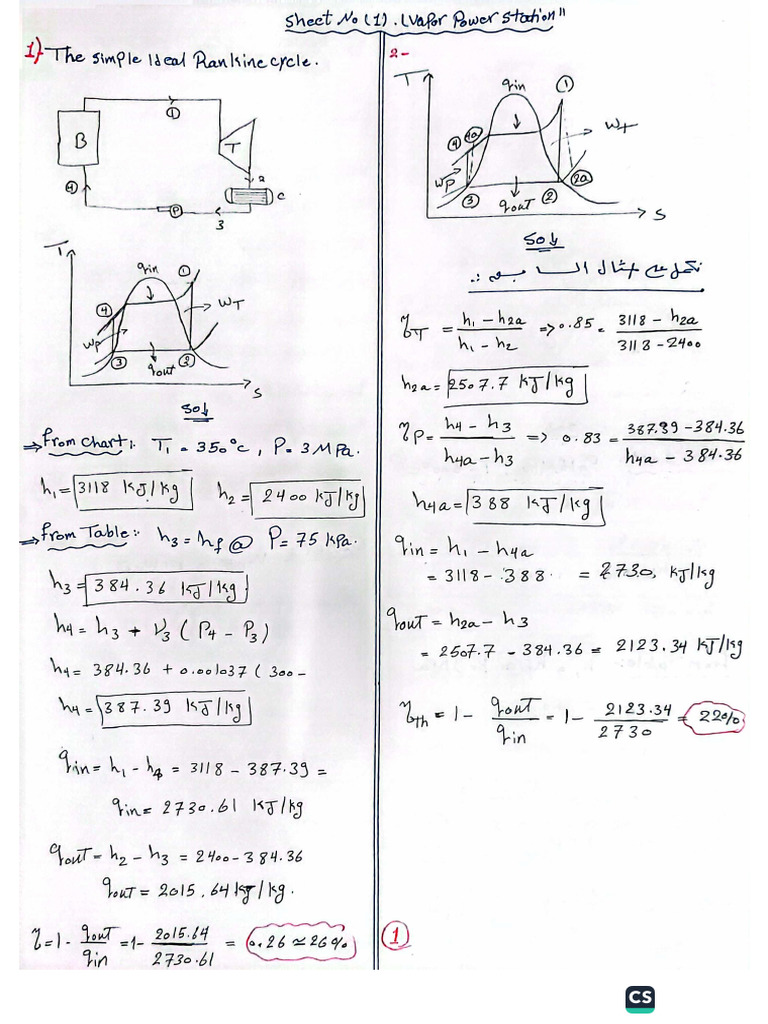 Sheet No (1). (Vapor Power Station"
1) The simple Ideal Rankine cycle.
①
B
T
2
C
④
P
3
T
qin
①
④
WT
WP
③
qout
②
S
Sol
⇒ From chart:. T1 = 350°C, P = 3 MPa.
h1 = 3118 KJ/kg h2 = 2400 KJ/kg
⇒ From Table:- h3 = hf @ P = 75 KPa.
h3 = 384.36 KJ/kg
h4 = h3 + ν3 ( P4 - P3)
h4 = 384.36 + 0.001037 ( 300-
h4 = 387.39 KJ/kg
qin = h1 - h4 = 3118 - 387.39 =
qin = 2730.61 KJ/kg
qout = h2 - h3 = 2400 - 384.36
qout = 2015.64 KJ/kg.
η = 1 - qout/qin = 1 - 2015.64/2730.61 = 0.26 ≃ 26%
2-
T
qin
①
④
4a
WT
WP
③
qout
②
2a
S
Sol
نكمل على المثال السابق :.
ηT = h1 - h2a / h1 - h2 => 0.85 = 3118 - h2a / 3118 - 2400
h2a = 2507.7 KJ/kg
ηP = h4 - h3 / h4a - h3 => 0.83 = 387.39 - 384.36 / h4a - 384.36
h4a = 388 KJ/kg
qin = h1 - h4a
= 3118 - 388 = 2730 KJ/kg
qout = h2a - h3
= 2507.7 - 384.36 = 2123.34 KJ/kg
ηth = 1 - qout/qin = 1 - 2123.34/2730 = 22%
①
CS